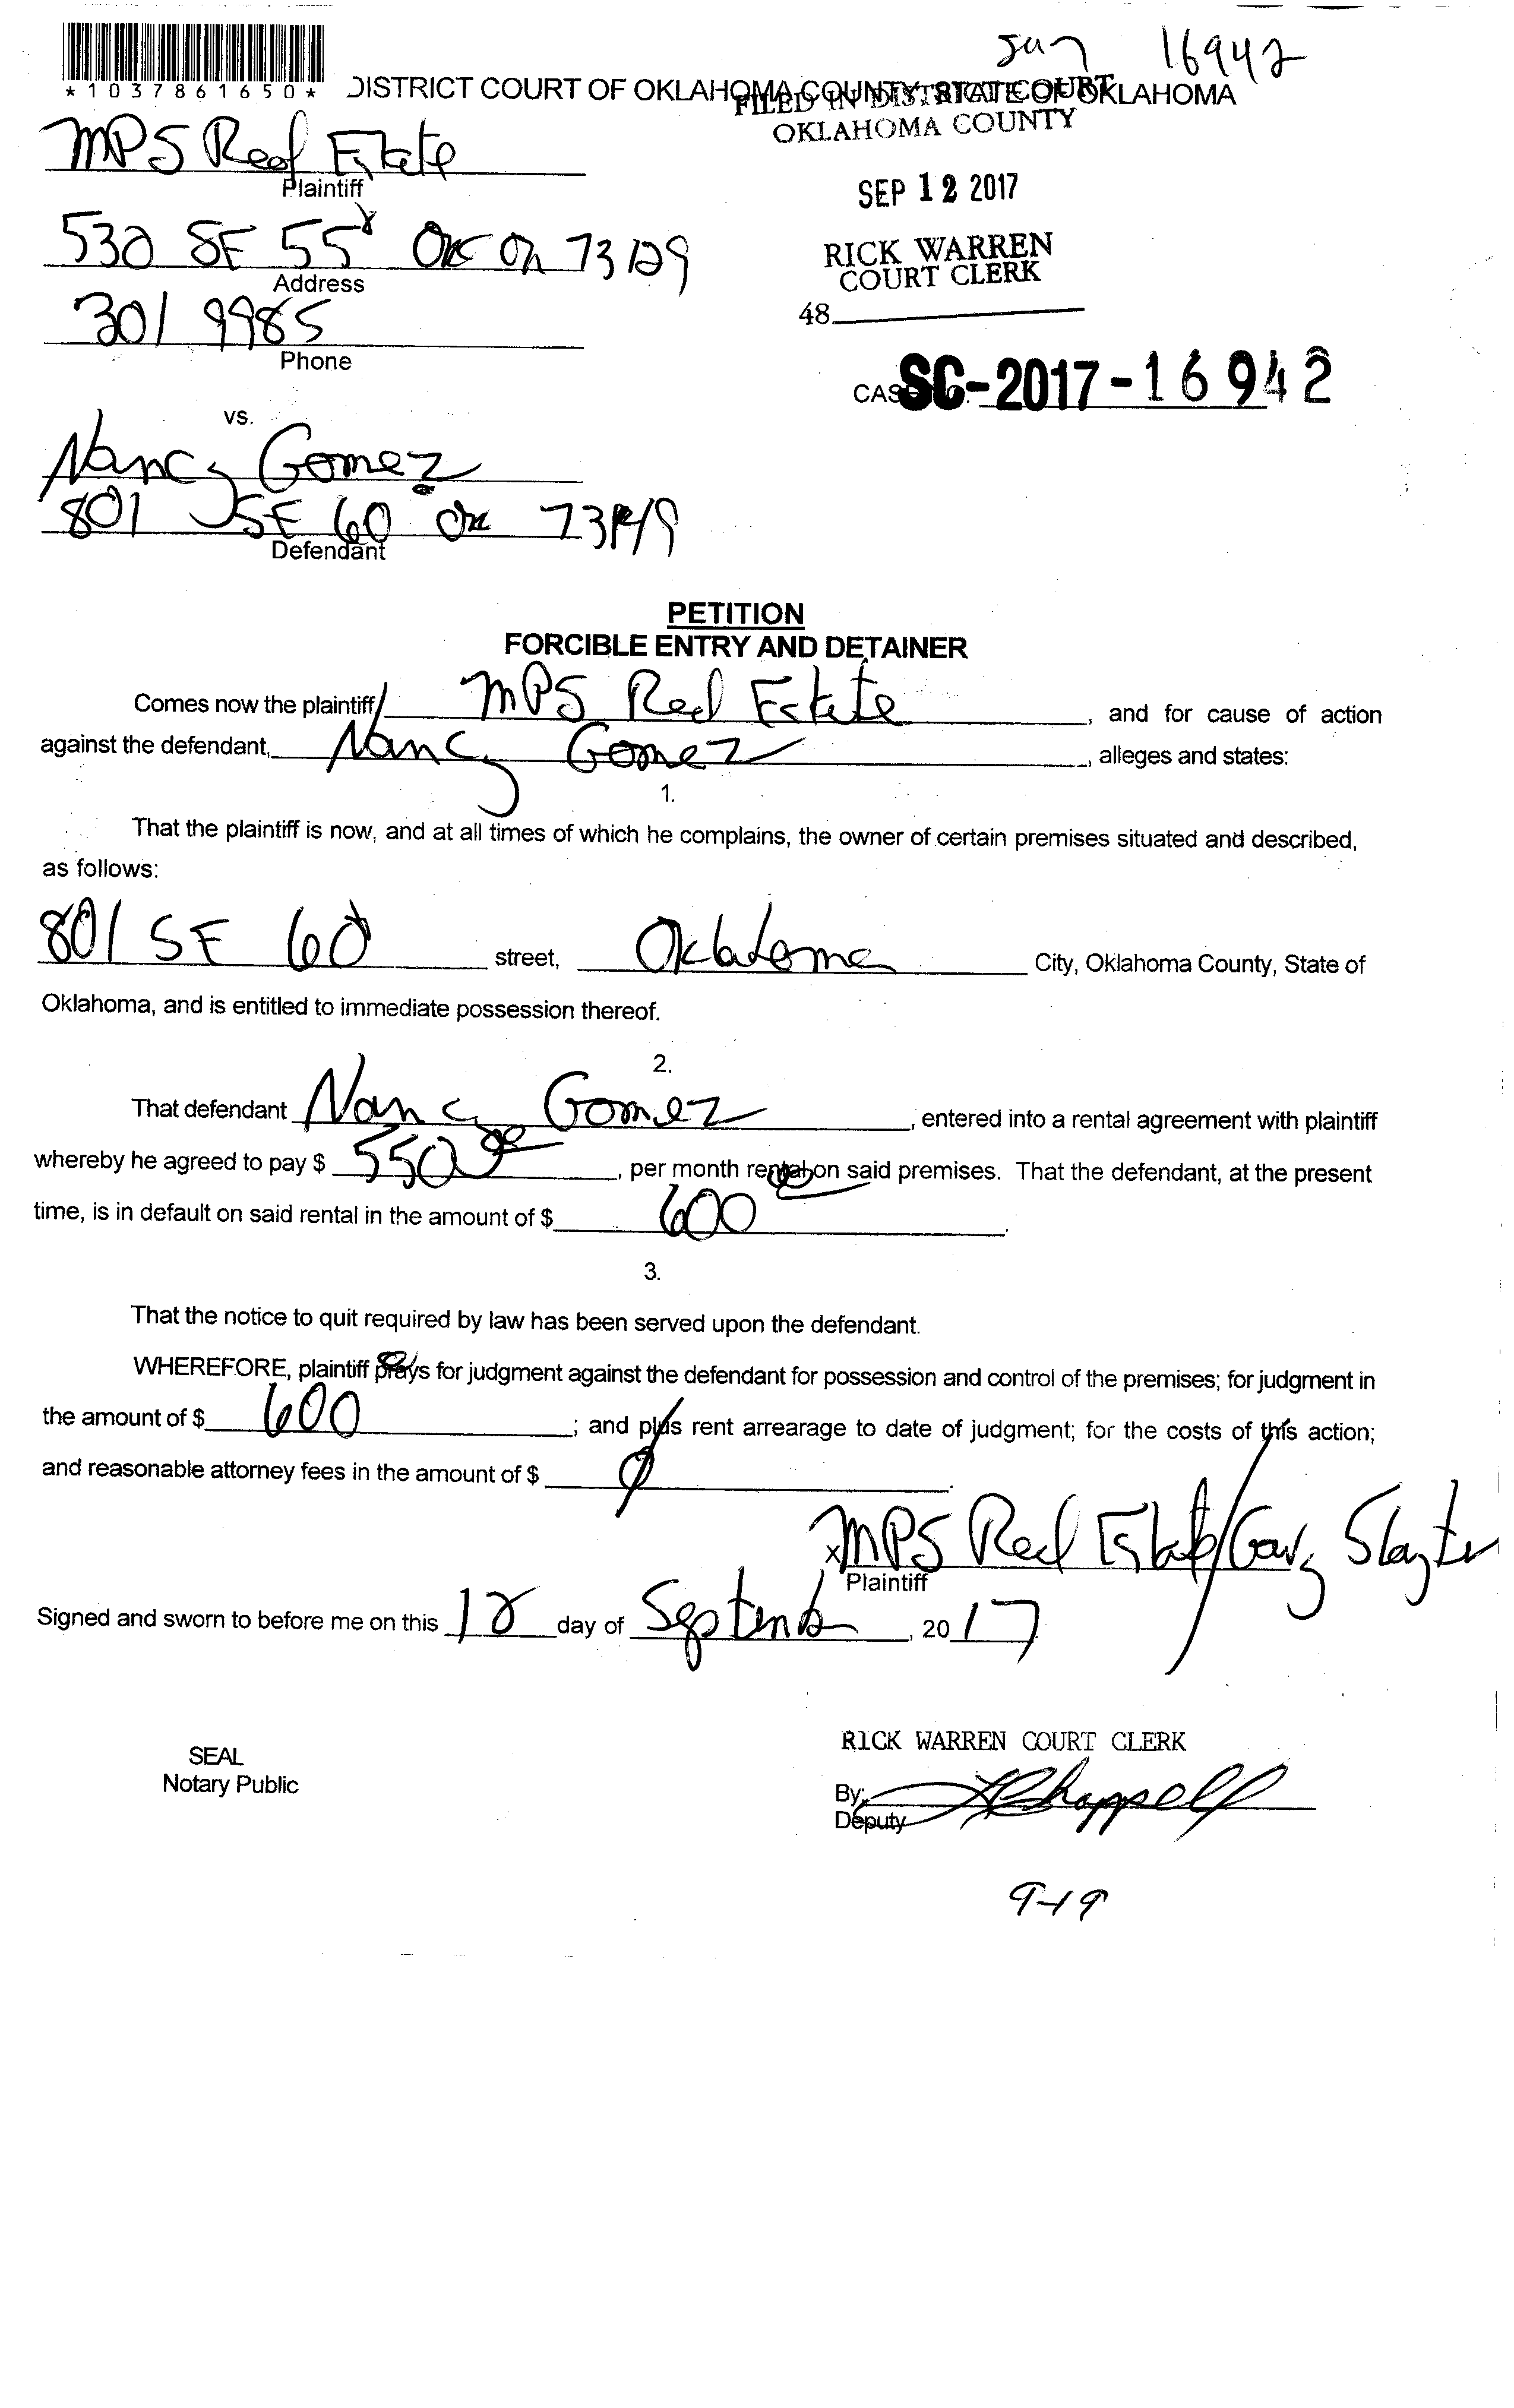 Jun 16942
*1037861650*
DISTRICT COURT OF OKLAHOMA COUNTY, STATE OF OKLAHOMA
FILED IN DISTRICT COURT
OKLAHOMA COUNTY
MPS Real Estate
Plaintiff
SEP 12 2017
530 SE 55 OKC OK 73129
Address
RICK WARREN
COURT CLERK
301 9985
Phone
48
CAS SC-2017-16942
vs.
Nancy Gomez
801 SE 60 OKC 73149
Defendant
PETITION
FORCIBLE ENTRY AND DETAINER
Comes now the plaintiff, MPS Real Estate, and for cause of action
against the defendant, Nancy Gomez, alleges and states:
1.
That the plaintiff is now, and at all times of which he complains, the owner of certain premises situated and described,
as follows:
801 SE 60 street, Oklahoma City, Oklahoma County, State of
Oklahoma, and is entitled to immediate possession thereof.
2.
That defendant Nancy Gomez, entered into a rental agreement with plaintiff
whereby he agreed to pay $ 550 00, per month rental on said premises. That the defendant, at the present
time, is in default on said rental in the amount of $ 600.
3.
That the notice to quit required by law has been served upon the defendant.
WHEREFORE, plaintiff prays for judgment against the defendant for possession and control of the premises; for judgment in
the amount of $ 600; and plus rent arrearage to date of judgment; for the costs of this action;
and reasonable attorney fees in the amount of $ 0.
x MPS Real Estate/Gary Slayter
Plaintiff
Signed and sworn to before me on this 12 day of September, 2017
RICK WARREN COURT CLERK
SEAL
Notary Public
By:
Deputy Chappell
9-19